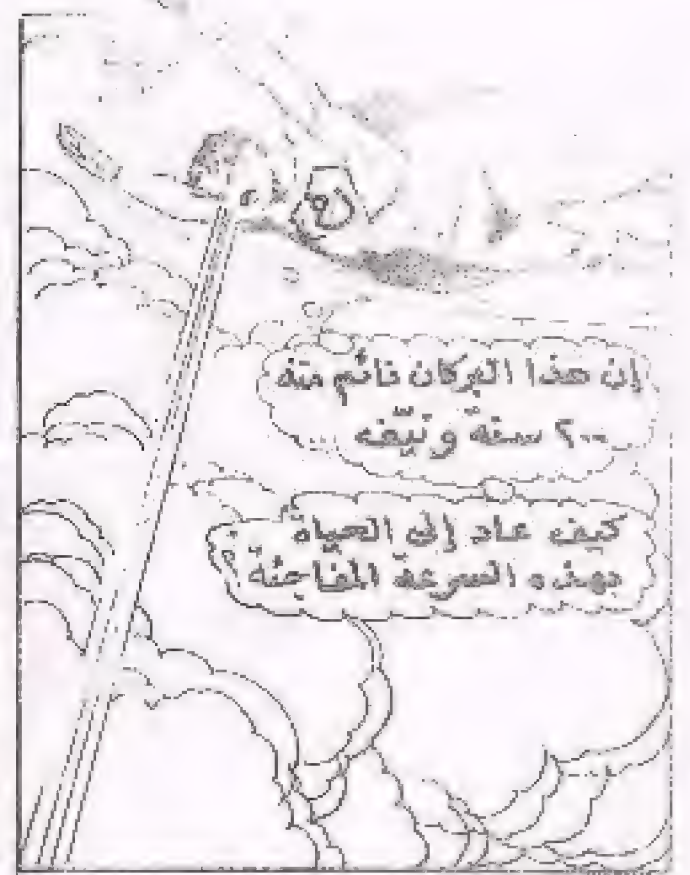 إن هذا البركان نائم منذ
٢٠٠ سنة ونيّف
كيف عاد إلى الحياة
بهذه السرعة المفاجئة ؟